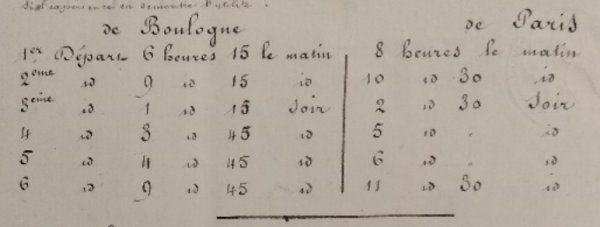 Si l'expérience en démontre l'utilité.
de Boulogne de Paris
1er Départ 6 heures 15 le matin 8 heures le matin
2ème id 9 id 15 id 10 id 30 id
3ème id 1 id 15 Soir 2 id 30 Soir
4 id 3 id 45 id 5 id " id
5 id 4 id 45 id 6 id " id
6 id 9 id 45 id 11 id 30 id